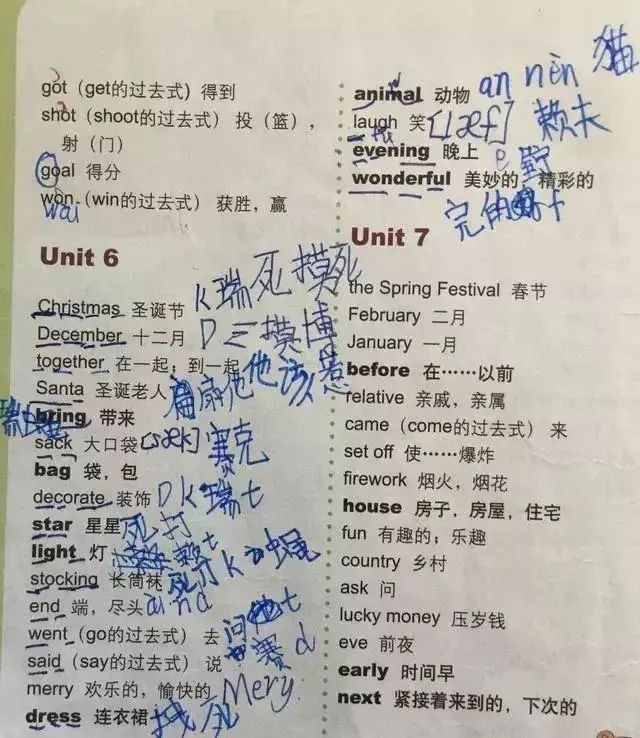 got (get的过去式) 得到
shot (shoot的过去式) 投 (篮),
射 (门)
goal 得分
won (win的过去式) 获胜，赢
wai
Unit 6
Christmas 圣诞节 k瑞死摸死
December 十二月 D三摸博
together 在一起；到一起
他该惹
Santa 圣诞老人
bring 带来
sack 大口袋 [sæk] 赛克
bag 袋，包
decorate 装饰 Dk瑞t
star 星星 死打
light 灯 赖t
stocking 长筒袜
end 端，尽头 aind
went (go的过去式) 去 t
said (say的过去式) 说 赛d
merry 欢乐的，愉快的 Mery
dress 连衣裙 死
animal 动物 an nèn 猫
laugh 笑 [læf] 赖夫
evening 晚上 e
wonderful 美妙的，精彩的
完的
Unit 7
the Spring Festival 春节
February 二月
January 一月
before 在……以前
relative 亲戚，亲属
came (come的过去式) 来
set off 使……爆炸
firework 烟火，烟花
house 房子，房屋，住宅
fun 有趣的；乐趣
country 乡村
ask 问
lucky money 压岁钱
eve 前夜
early 时间早
next 紧接着来到的，下次的